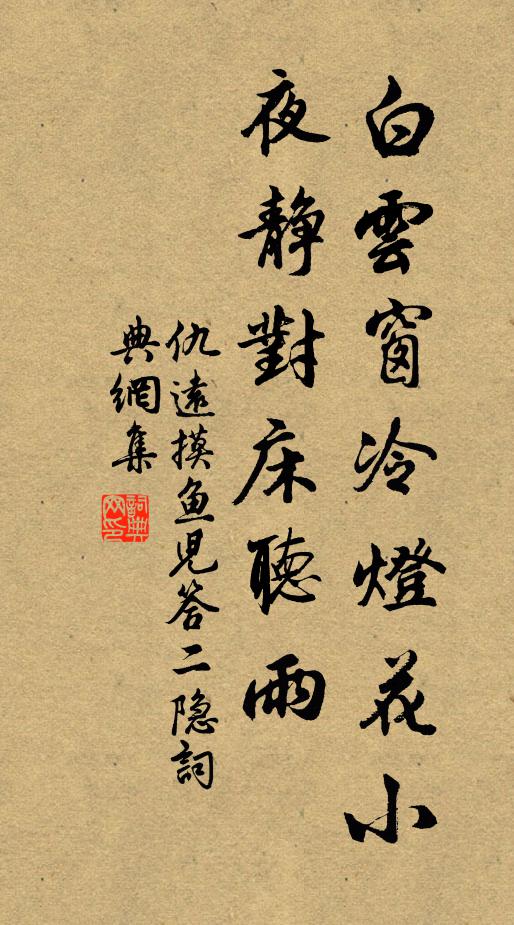 白雲窗冷燈花小
夜静對床聽雨
仇遠摸鱼児答二隐詞
典網集
詞典
网印